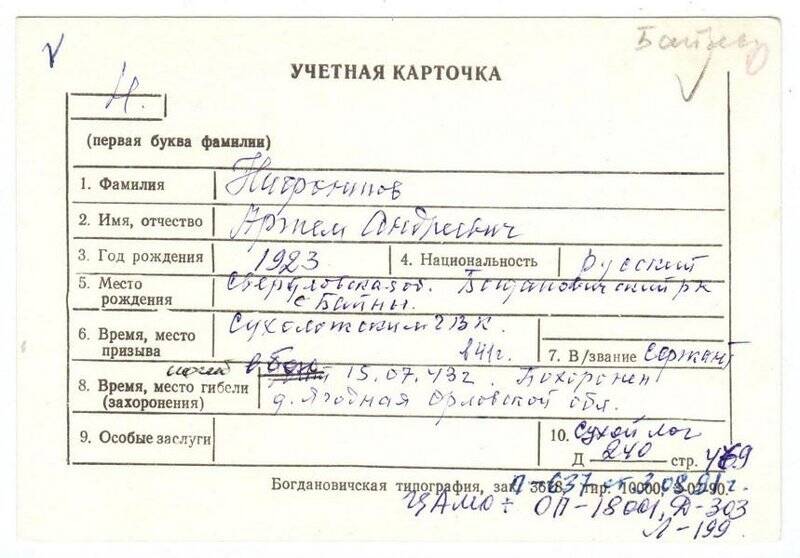 УЧЕТНАЯ КАРТОЧКА
Н.
(первая буква фамилии)
1. Фамилия
2. Имя, отчество Артем Андреевич
3. Год рождения 1923 4. Национальность русский
5. Место рождения Свердловская об. Богдановический р-н
с Байны.
6. Время, место призыва Сухоложским ГВК.
в 41г. 7. В/звание Сержант
8. Время, место гибели (захоронения) погиб в бою 15.07.43г. Похоронен
д. Ягодная Орловской обл.
9. Особые заслуги 10. Сухой Лог
Д 240 стр. 469
Богдановичская типография, зак. 3618, тир. 10000, 3-07-90.
ЦАМО: ОП-18001, Д-303
Л-199